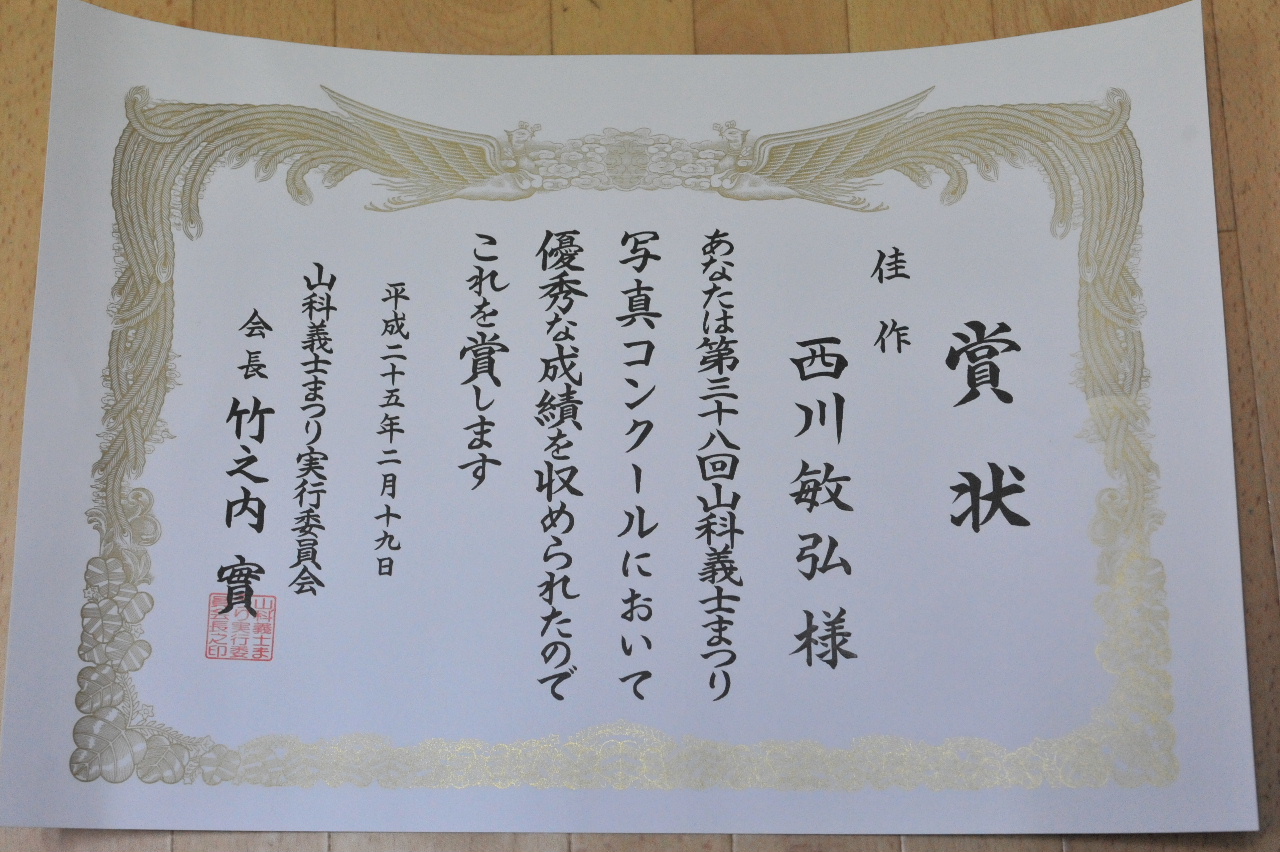 賞状
佳作
西川敏弘様
あなたは第三十八回山科義士まつり
写真コンクールにおいて
優秀な成績を収められたので
これを賞します
平成二十五年二月十九日
山科義士まつり実行委員会
会長 竹之内 實
山科義士ま
つり実行委
員会長之印